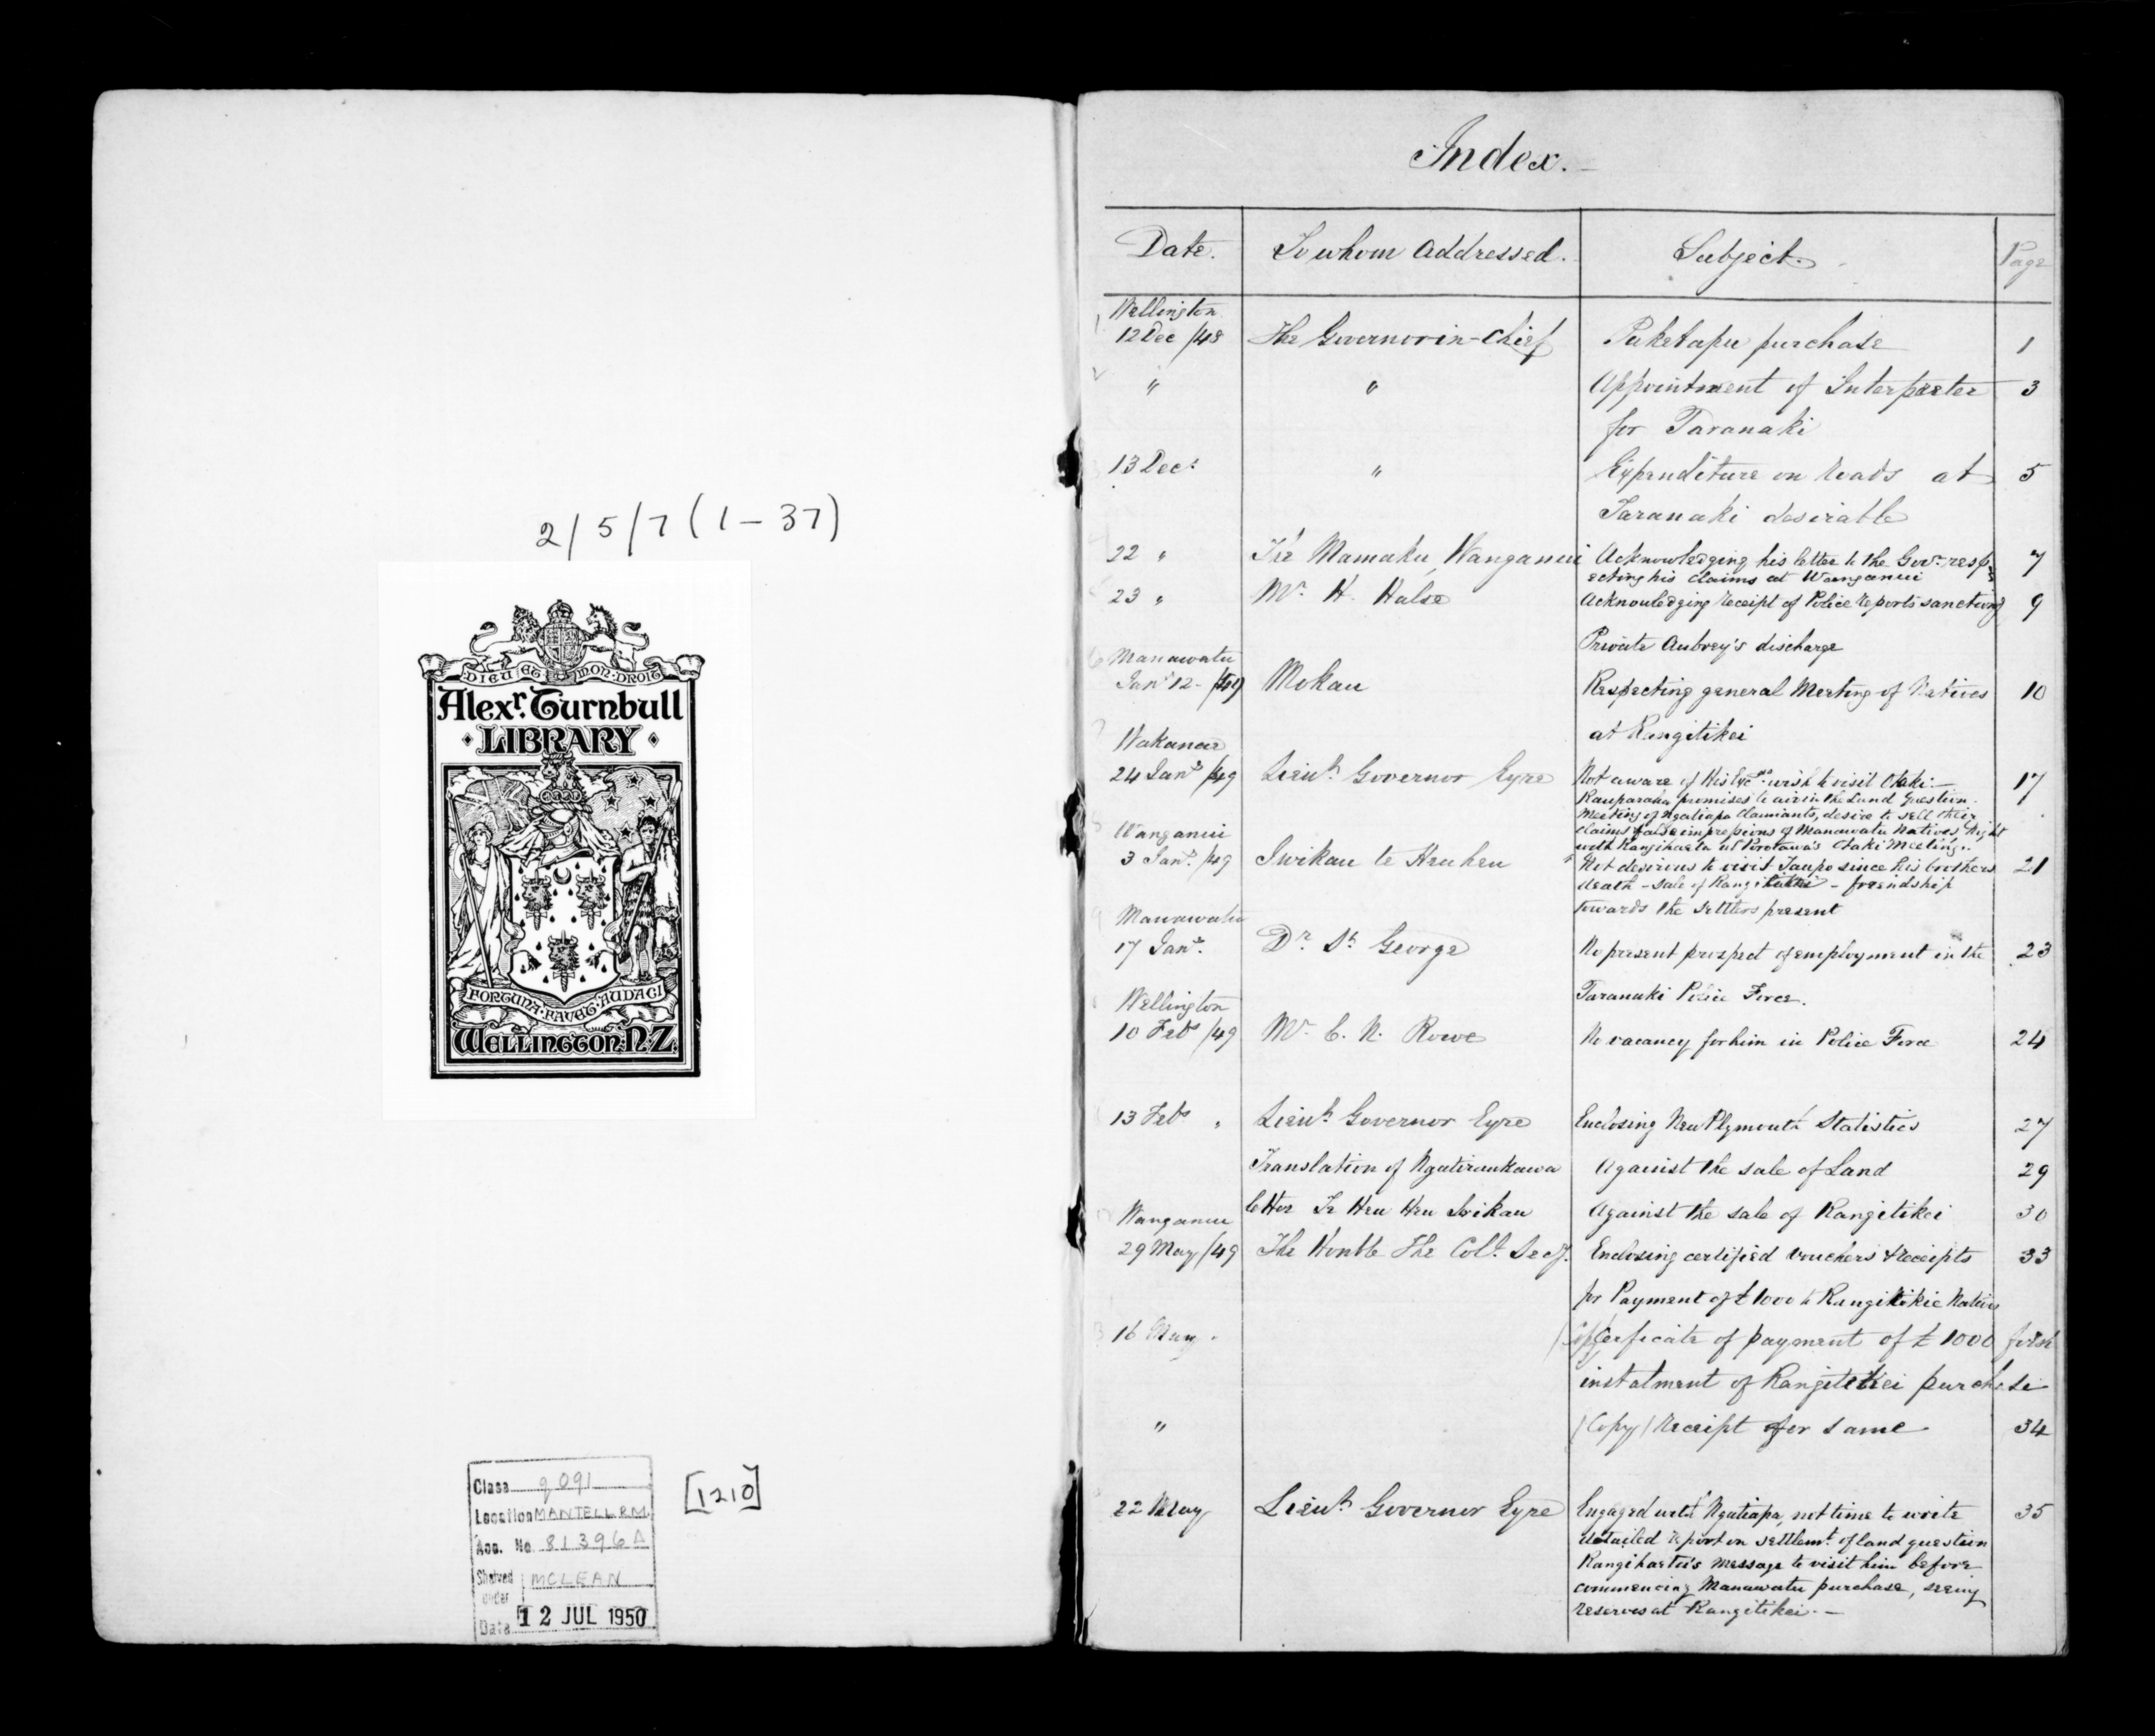 2/5/7 (1-37)
DIEU ET MON DROIT
Alexr. Turnbull
LIBRARY
FORTUNA FAVET AUDACI
WELLINGTON. N.Z.
Class g 091
Location MANTELL RM.
Acc. No 81396A
Shelved under MCLEAN
Date 12 JUL 1950
[1210]
Index.
Date. To whom Addressed. Subject. Page
1 Wellington
12 Dec /48 The Governor in-Chief Puketapu purchase 1
2 " " Appointment of Interpreter 3
for Taranaki
13 Decr " Expenditure on Roads at 5
Taranaki desirable
22 " Te Mamaku, Wanganui Acknowledging his letter to the Govr. resp 7
ecting his claims at Wanganui
23 " Mr. H. Halse Acknowledging receipt of Police reports sanctiong 9
Private Aubrey's discharge
6 Manawatu
Jany 12 - /49 Mokau Respecting general Meeting of Natives 10
at Rangitikei
7 Wakanae
24 Jany /49 Lieut. Governor Eyre Not aware of His wish to visit Otaki — 17
Rauparaha promises to aid in the Land Question.
Meeting of Ngatiapa Claimants, desire to sell their
claims false impressions of Manawatu Natives
with Rangihaeata at Otaki Meeting.
Wanganui
3 Jany. /49 Iwikau te Heuheu Not desirous to visit Taupo since his brothers 21
death - sale of Rangitikei - friendship
towards the settlers present
9 Manawatu
17 Jany. Dr. St. George No present prospect of employment in the 23
Taranaki Police Force.
Wellington
10 Feby /49 Mr. C. N. Rowe No vacancy for him in Police Force 24
13 Feby " Lieut. Governor Eyre Enclosing New Plymouth Statistics 27
Translation of Ngatiraukawa Against the sale of Land 29
letter Te Heu Heu Iwikau Against the sale of Rangitikei 30
Wanganui
29 May /49 The Honble The Coll. Secy. Enclosing certified vouchers & receipts 33
for Payment of £1000 to Rangitikie Natives
16 May. (Copy) Cerficate of payment of £1000 first
instalment of Rangitikei purchase
" (Copy) Receipt for same 34
22 May Lieut. Governor Eyre Engaged with Ngatiapa, not time to write 35
detailed report on settlemt. of land question
Rangihaeta's message to visit him before
commencing Manawatu purchase,
reserves at Rangitikei. —